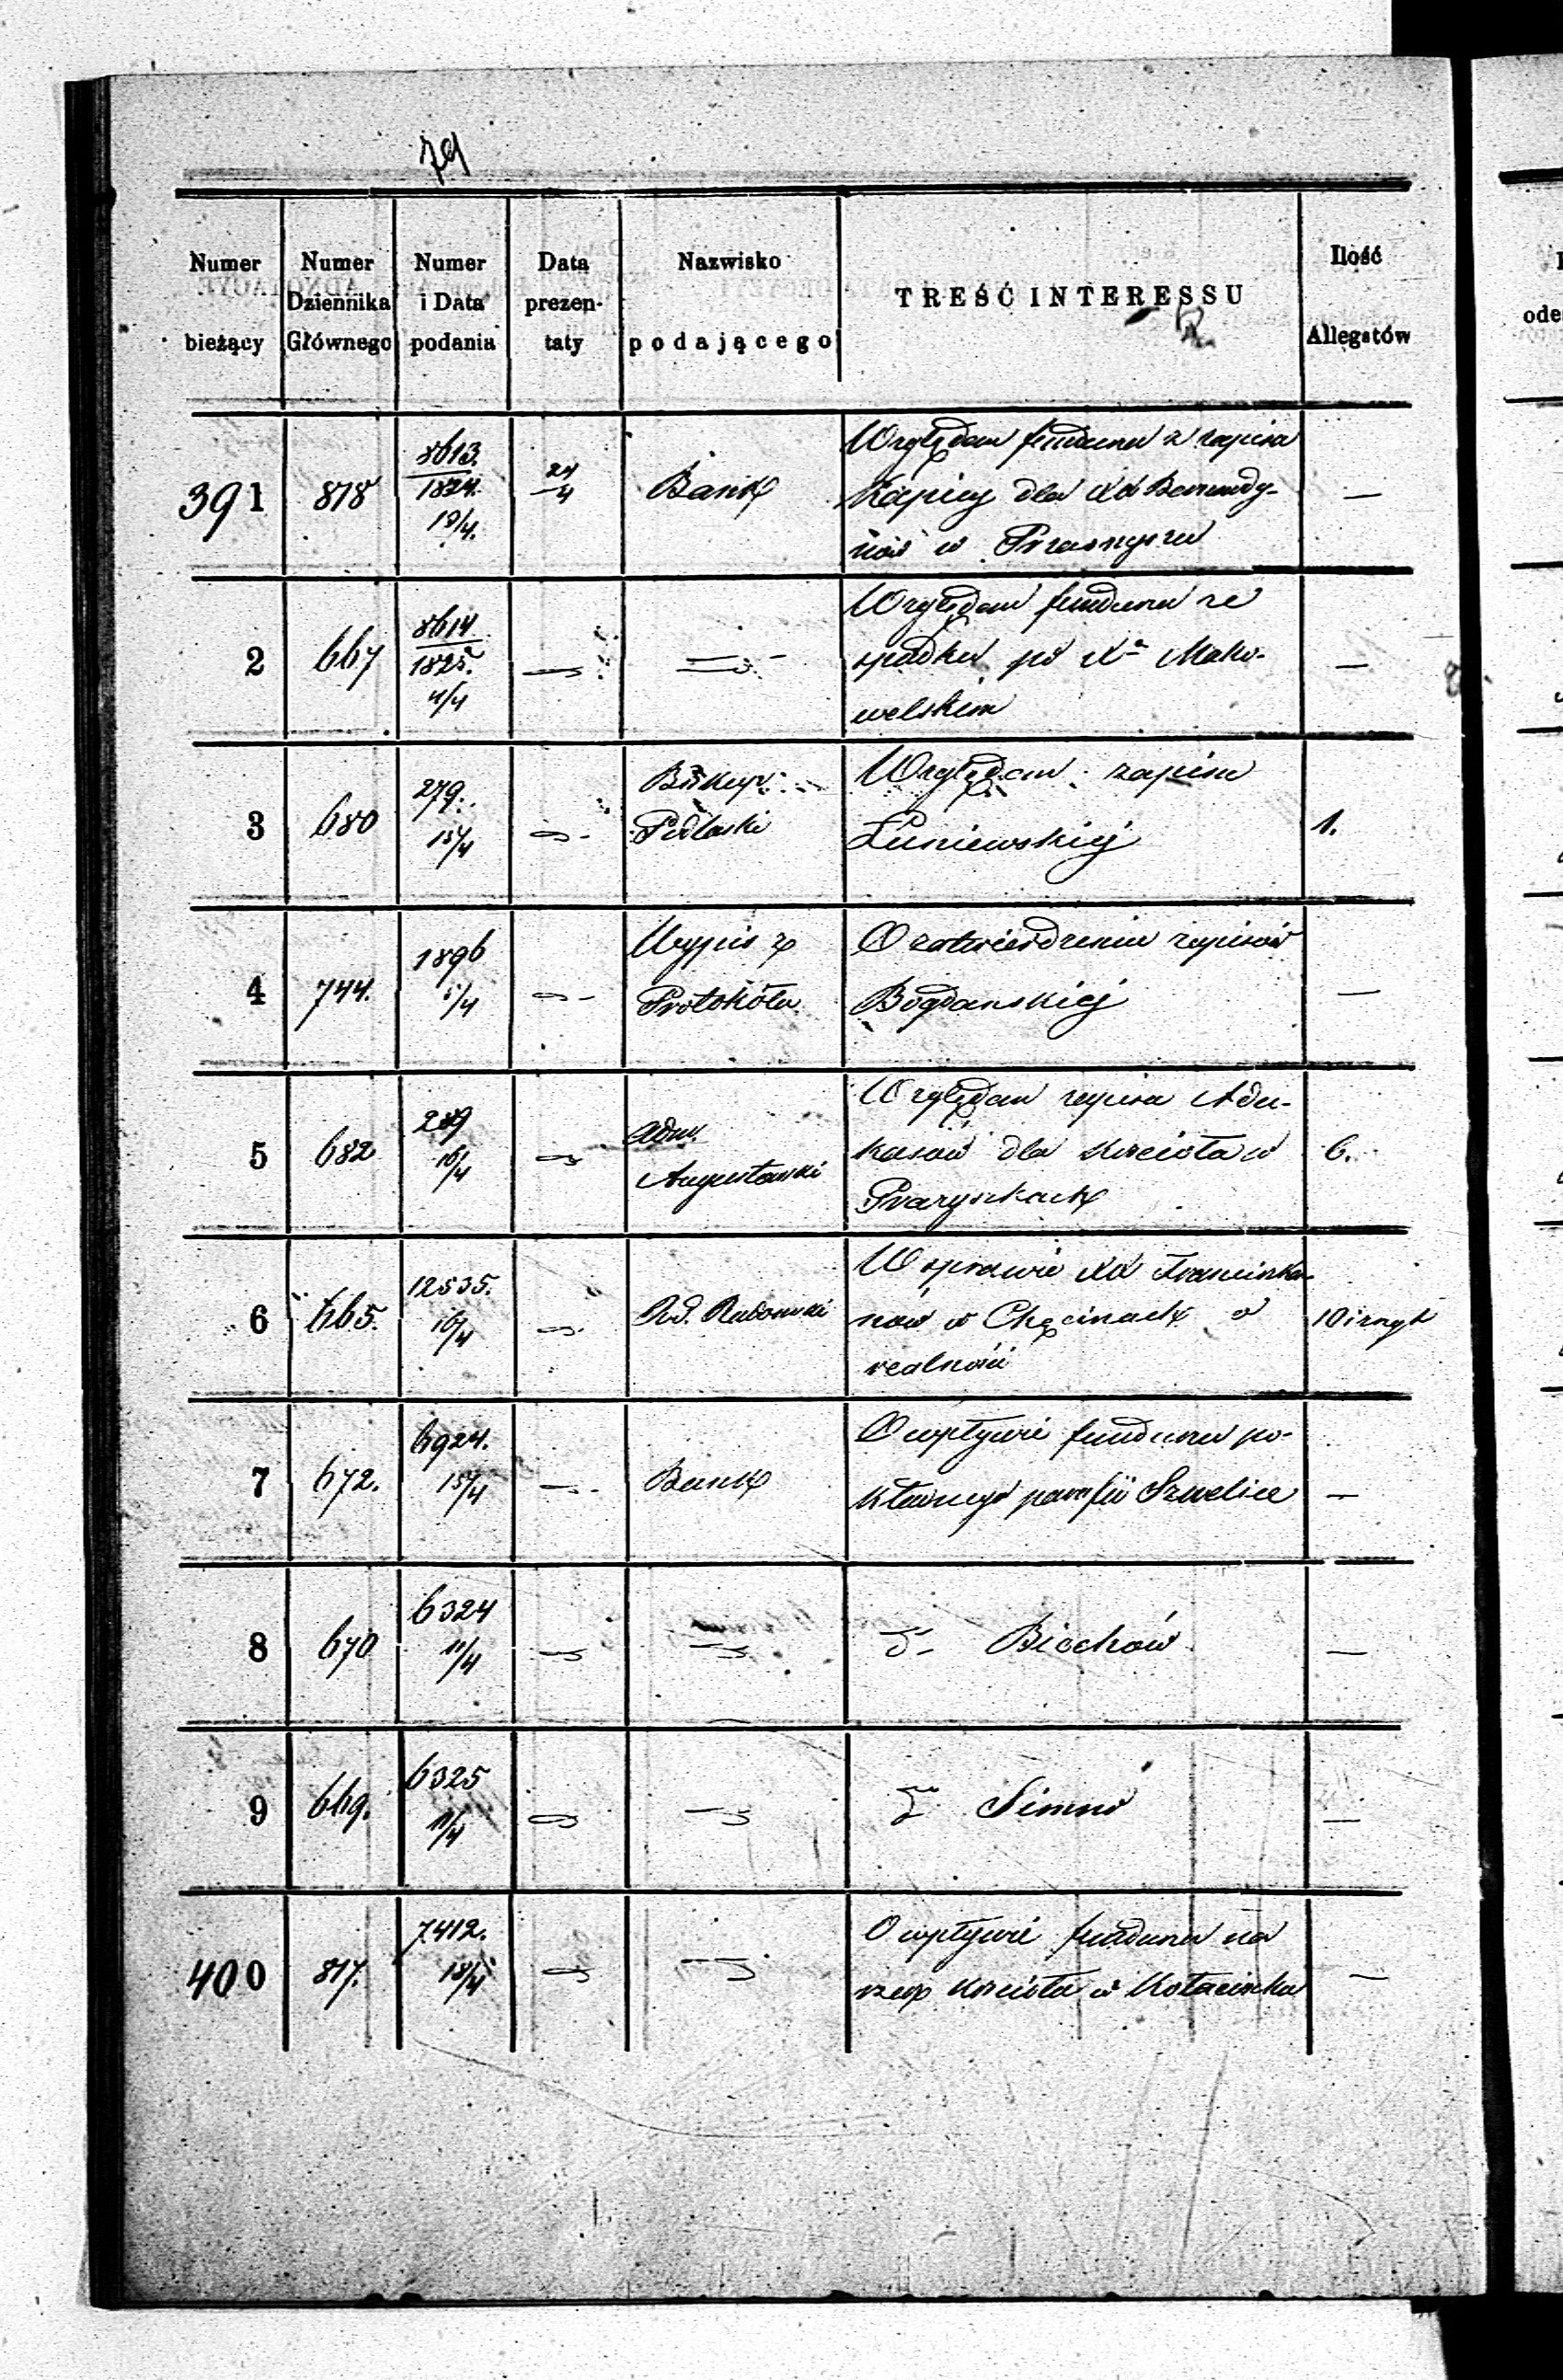 79
Numer bieżący
Numer Dziennika Głównego
Numer i Data podania
Data prezentaty
Nazwisko podającego
TREŚĆ INTERESSU
Ilość Allegatów
391 818 8613. 1824. 19/4. 24/4 Bank
Względem funduszu z zapisu
Kapicy dla XX Bernardy-
nów w Przasnyszu —
2 667 8614 1825.
Względem funduszu ze
spadku po Xa Mako-
welskim —
3 680 279. 15/4 Biskup Podlaski
Względem zapisu
Łuniewskiej 1.
4 744. 1896 5/4 Wypis z Protokółu
O zatwierdzenie zapisów
Bogdanskiej —
5 682 289 16/4 Adm. Augustowski
Względem zapisu Adu-
kasów dla kościoła w 6.
6 665. 12535. 16/4 Rd. Radomski
W sprawie XX Franciszka-
nów w Chęcinach o 10 i zszyt
realność
7 672. 6924. 15/4 Bank
O wpływie funduszu po-
kławnego parafii Szwelice —
8 670 6324 11/4
d- Biechów —
9 669. 6325 11/4
d Simno —
400 817. 7412. 18/4
O wpływie funduszu na
rzecz kościoła w Kołacinku —